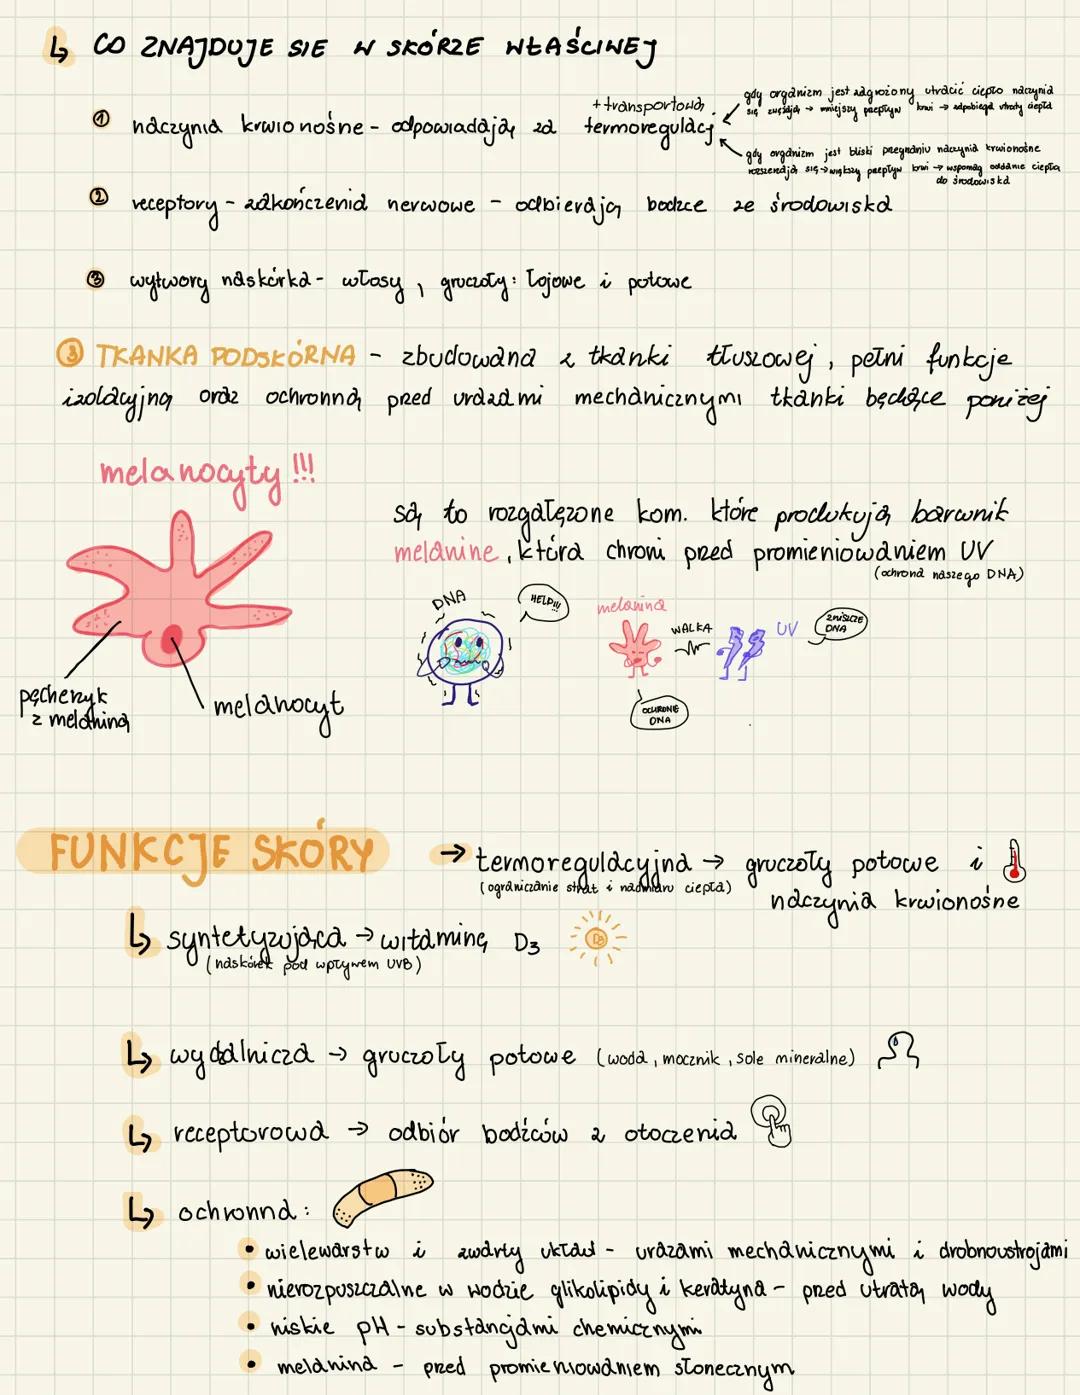 CO ZNAJDUJE SIE W SKÓRZE WŁAŚCIWEJ
① naczynia krwionośne - odpowiadają za termoregulacj
+ transportową
gdy organizm jest zagrożony utracić ciepło naczynia
się zwężają → mniejszy przepływ krwi → zapobiega utraty ciepła
gdy organizm jest bliski przegrzaniu naczynia krwionośne
rozszerzają się → większy przepływ krwi → wspomag oddanie ciepła
do środowiska
② receptory - zakończenia nerwowe - odbierają bodźce ze środowiska
③ wytwory naskórka - włosy, gruczoły: łojowe i potowe
③ TKANKA PODSKÓRNA - zbudowana z tkanki tłuszowej, pełni funkcje
izolacyjną oraz ochronną przed urazami mechanicznymi tkanki będące poniżej
melanocyty !!!
są to rozgałęzone kom. które produkują barwnik
melanine, która chroni przed promieniowaniem UV
(ochrona naszego DNA)
DNA
HELP!!!
melanina
WALKA
UV
ZNISZCZE
DNA
OCHRONIE
DNA
pęcherzyk
z melaniną
melanocyt
FUNKCJE SKÓRY
→ termoregulacyjna → gruczoły potowe i
(ograniczanie strat i nadmiaru ciepła)
naczynia krwionośne
syntetyzująca → witaminę D3
D3
(naskórek pod wpływem UVB)
wydalnicza → gruczoły potowe (woda, mocznik, sole mineralne)
receptorowa → odbiór bodźców z otoczenia
ochronna:
• wielewarstw i zwarty układ - urazami mechanicznymi i drobnoustrojami
• nierozpuszczalne w wodzie glikolipidy i keratyna - przed utratą wody
• niskie pH - substancjami chemicznymi
• melanina - przed promieniowaniem słonecznym